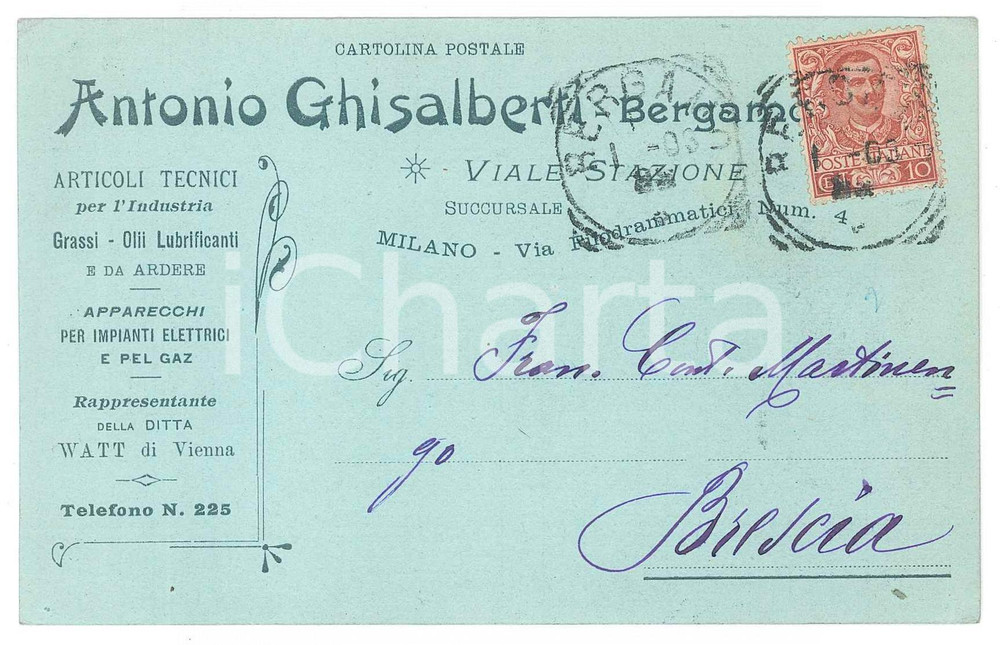 CARTOLINA POSTALE
Antonio Ghisalberti Bergamo
VIALE STAZIONE
SUCCURSALE
MILANO - Via Filodrammatici, Num. 4
ARTICOLI TECNICI
per l'Industria
Grassi - Olii Lubrificanti
E DA ARDERE
APPARECCHI
PER IMPIANTI ELETTRICI
E PEL GAZ
Rappresentante
DELLA DITTA
WATT di Vienna
Telefono N. 225
BERGAMO
1 -03
POSTE ITALIANE
10
iCharta
Sig. Fran. Cont. Martinen=
go
Brescia